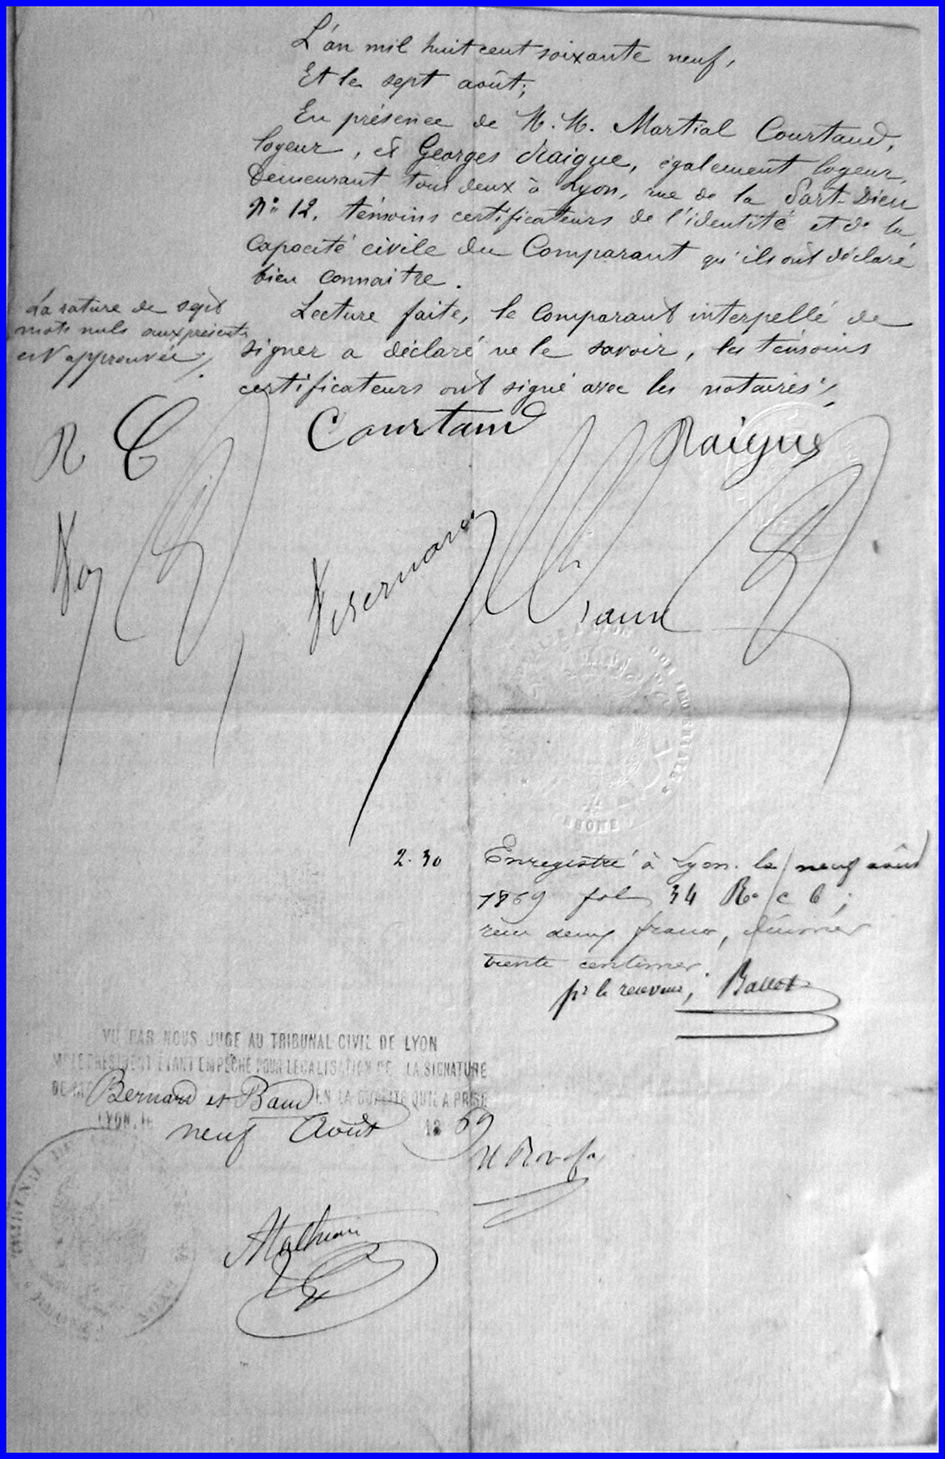 L'an mil huit cent soixante neuf,
Et le sept août;
En présence de M. M. Martial Courtaud,
logeur, et Georges Raigue, également logeur,
Demeurant tous deux à Lyon, rue de la Part-Dieu
N° 12, témoins certificateurs de l'identité et de la
capacité civile du Comparant qu'ils ont déclaré
bien connaitre.
La rature de sept
mots nuls aux présentes
est approuvée ;
Lecture faite, le Comparant interpellé de
signer a déclaré ne le savoir, les témoins
certificateurs ont signé avec les notaires ;
R C
Courtaud
Raigue
2.30
Enregistré à Lyon le neuf août
1869 fol 34 R° c 6 ;
reçu deux francs, décimes
trente centimes
pr le receveur,
VU PAR NOUS JUGE AU TRIBUNAL CIVIL DE LYON
Mr LE PRÉSIDENT ÉTANT EMPÊCHÉ POUR LÉGALISATION DE LA SIGNATURE
DE Me Bernard et Baud EN LA QUALITÉ QU'IL A PRISE
LYON, le neuf Août 1869